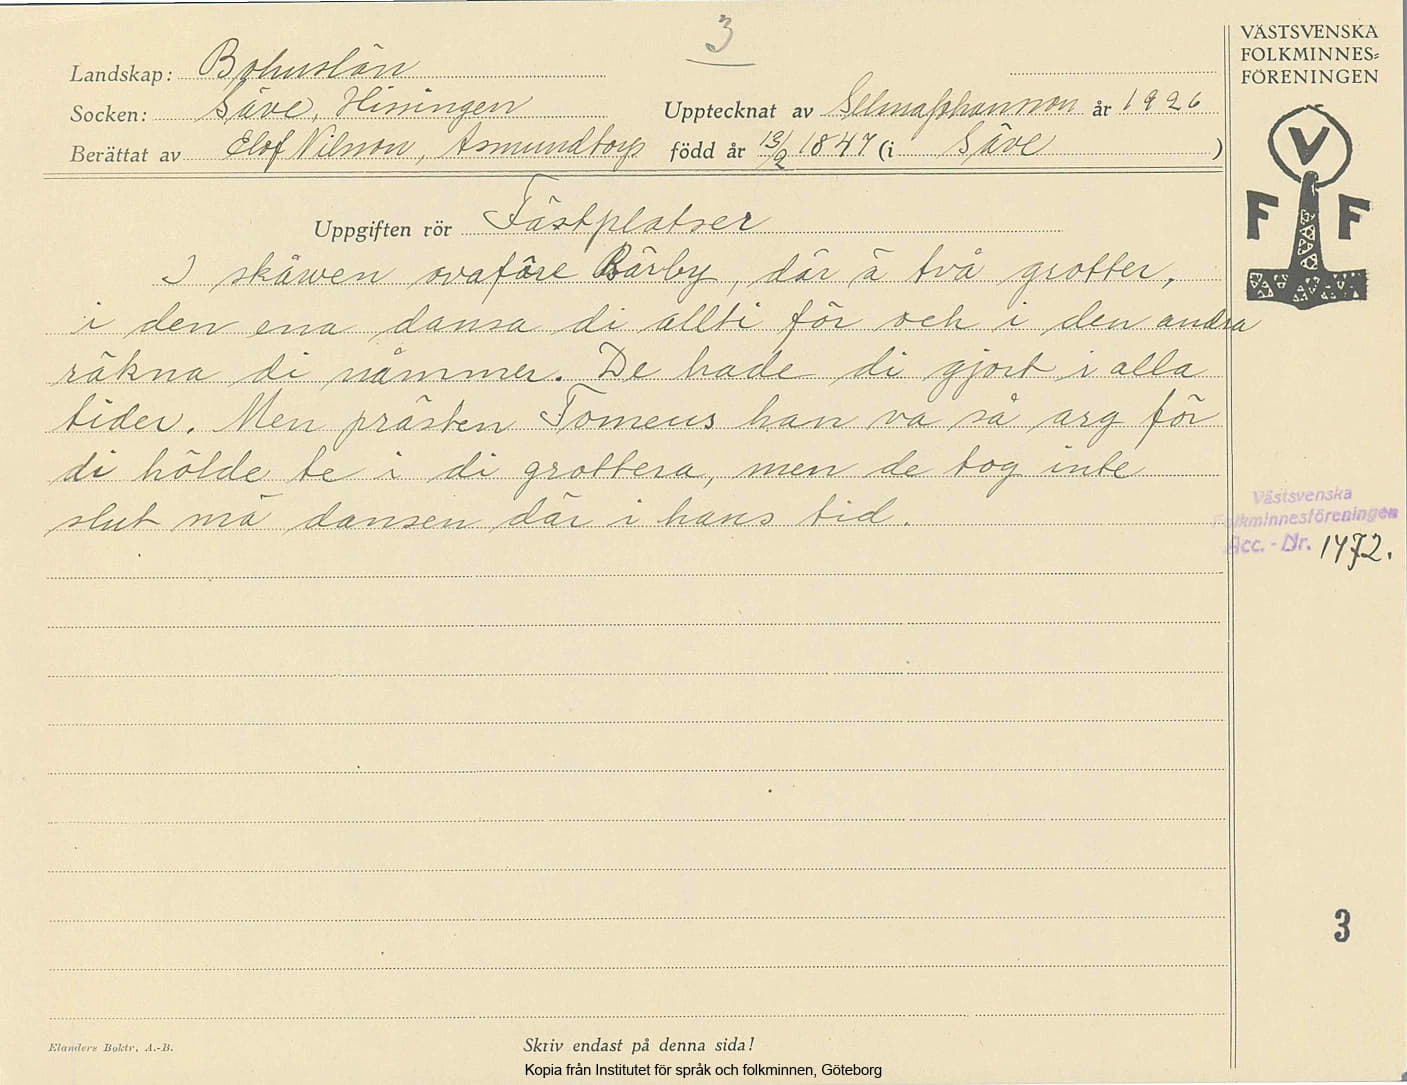 3
VÄSTSVENSKA
FOLKMINNES=
FÖRENINGEN
Landskap: Bohuslän
Socken: Säve, Hisingen
Upptecknat av Selma Johansson år 1926
Berättat av Elof Nilsson, Asmundtorp född år 13/2 1847 (i Säve )
V
F F
Uppgiften rör Fästplatser
I skåwen ovaföre Bärby, där ä två grotter,
i den ena dansa di allti för och i den andra
räkna di nåmmer. De hade di gjort i alla
tider. Men prästen Tomeus han va så arg för
di hölde te i di grottera, men de tog inte
slut mä dansen där i hans tid.
Västsvenska
Folkminnesföreningen
Acc. - Nr. 1472.
3
Elanders Boktr. A.-B.
Skriv endast på denna sida!
Kopia från Institutet för språk och folkminnen, Göteborg